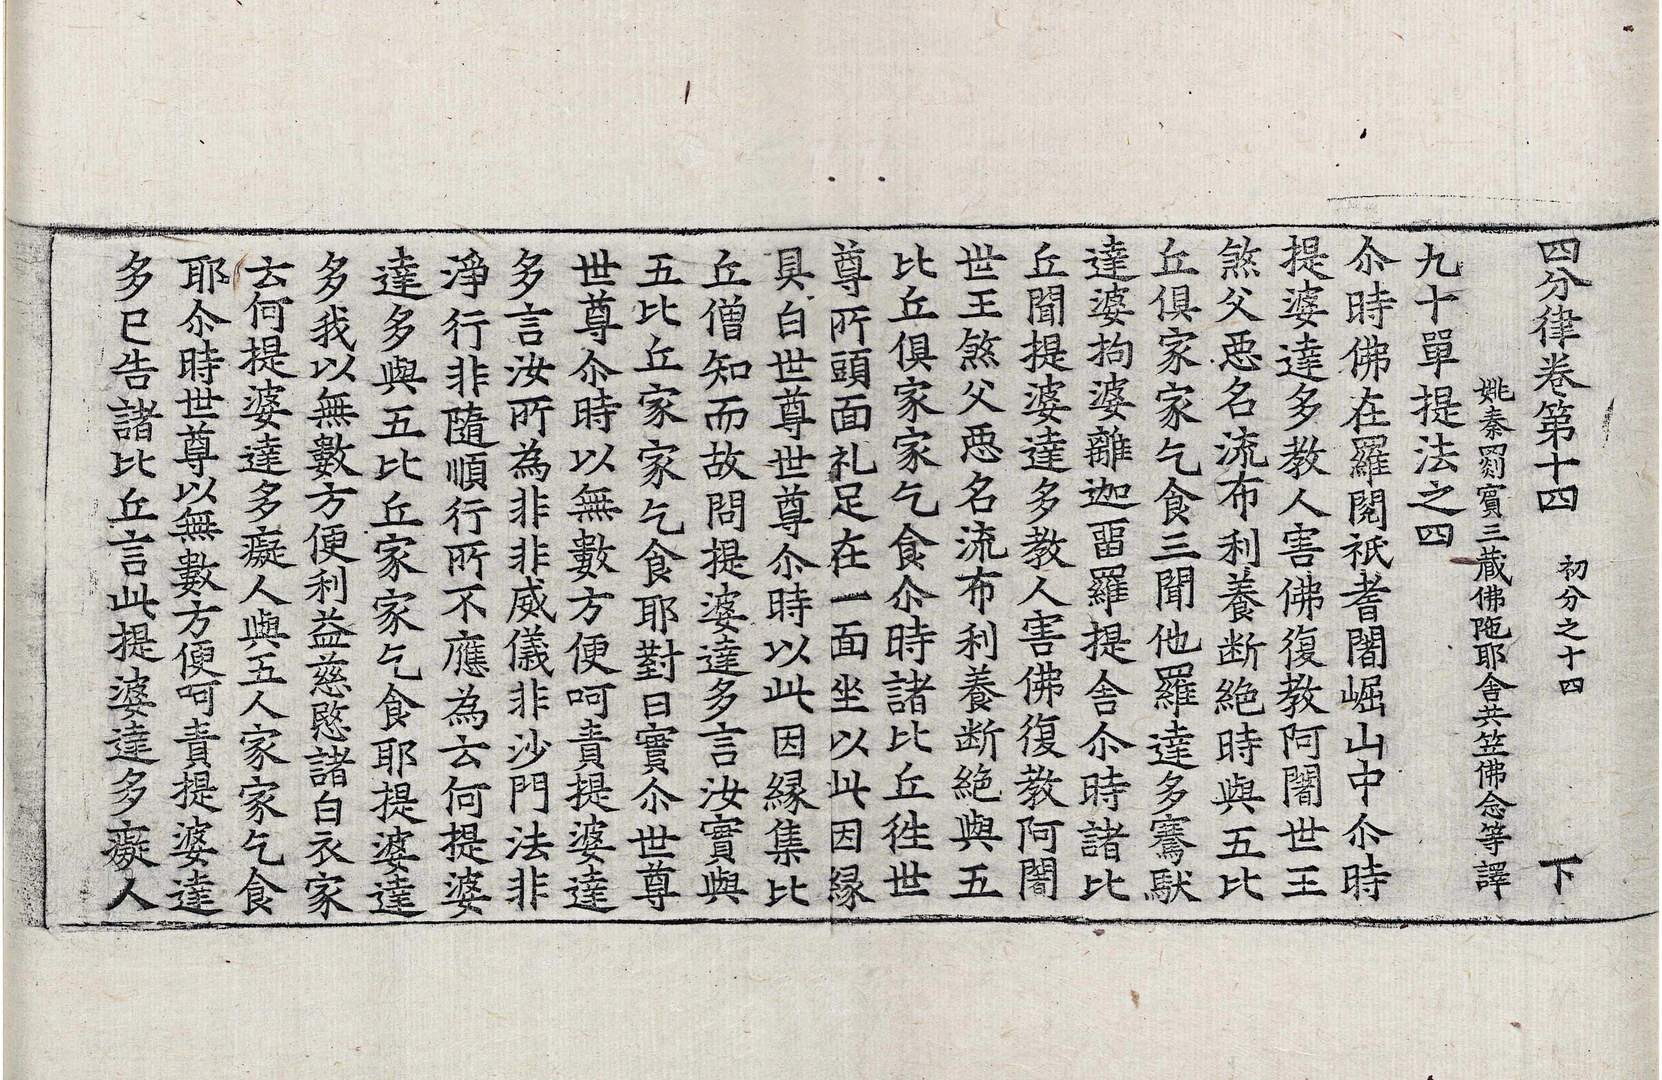 四分律卷第十四 初分之十四 下
姚秦罽賓三藏佛陁耶舍共竺佛念等譯
九十單提法之四
尒時佛在羅閱祇耆闍崛山中尒時
提婆達多教人害佛復教阿闍世王
煞父惡名流布利養斷絕時與五比
丘俱家家乞食三聞他羅達多騫馱
達婆拘婆離迦畱羅提舍尒時諸比
丘聞提婆達多教人害佛復教阿闍
世王煞父惡名流布利養斷絕與五
比丘俱家家乞食尒時諸比丘徃世
尊所頭面礼足在一面坐以此因縁
具白世尊世尊尒時以此因縁集比
丘僧知而故問提婆達多言汝實與
五比丘家家乞食耶對曰實尒世尊
世尊尒時以無數方便呵責提婆達
多言汝所為非非威儀非沙門法非
淨行非隨順行所不應為云何提婆
達多與五比丘家家乞食耶提婆達
多我以無數方便利益慈愍諸白衣家
云何提婆達多癡人與五人家家乞食
耶尒時世尊以無數方便呵責提婆達
多已告諸比丘言此提婆達多癡人